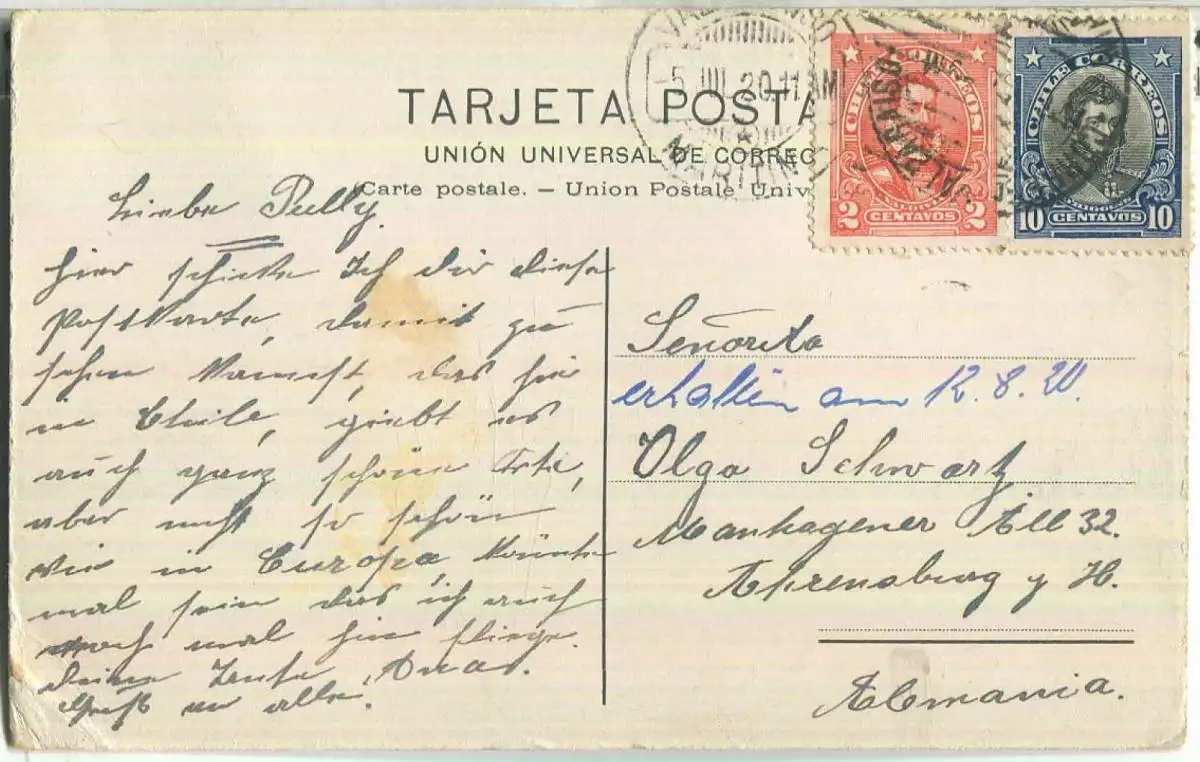 TARJETA POSTA
UNIÓN UNIVERSAL DE CORREO
Carte postale. — Union Postale Univ
5 JUL 20 11 AM
MARITIM
VALPARAISO
CHILE CORREOS
VALDIVIA
2 CENTAVOS 2
CHILE CORREOS
10 CENTAVOS 10
Liebe Pully
hier schicke Ich dir diese
Postkarte, damit zu
sehen kannst, das hir
in Chile, giebt es
auch ganz schöne Orte,
aber nicht so schön
wie in Europa, könnte
mal sein das ich auch
noch mal hin fliege.
Deine Tante
Gruß an alle.
Señorita
erhalten am 12.8.20.
Olga Schwartz
Manhagener All 32.
Ahrensburg y H.
Alemania.